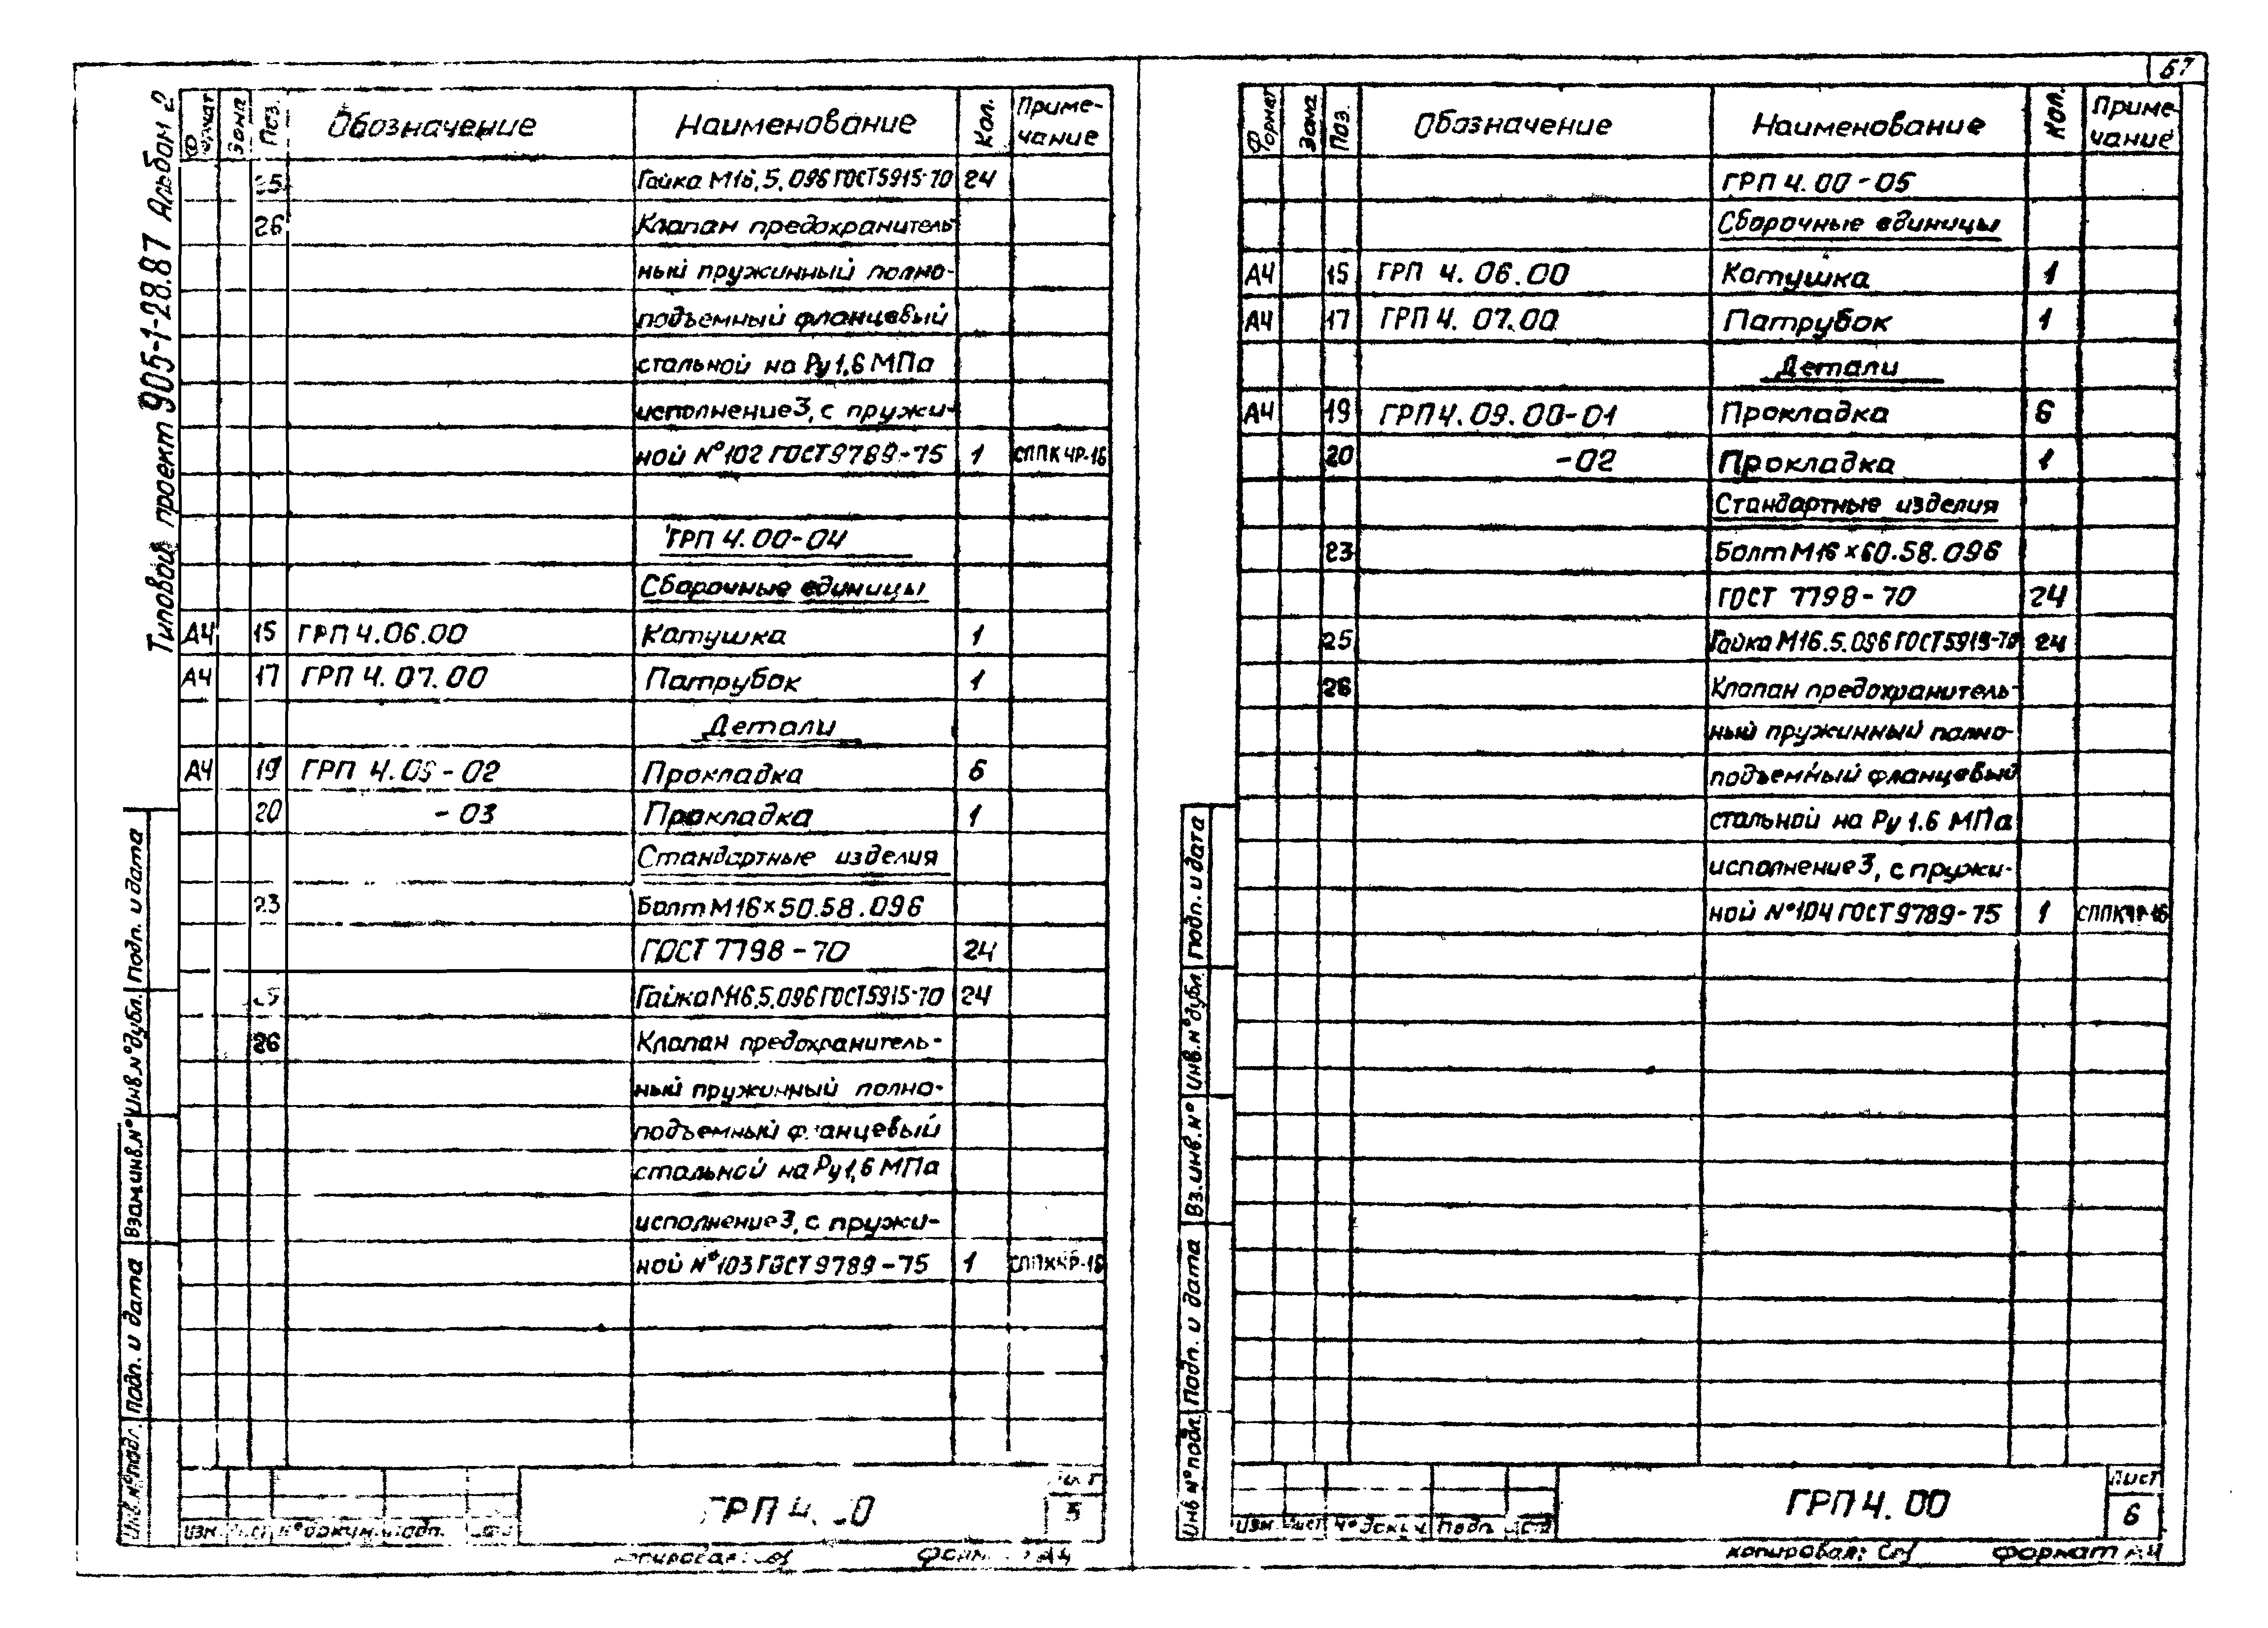 57
Типовой проект 905-1-28.87 Альбом 2
Формат Зона Поз. Обозначение Наименование Кол. Приме-
чание
25 Гайка М16.5.096 ГОСТ 5915-70 24
26 Клапан предохранитель-
ный пружинный полно-
подъемный фланцевый
стальной на Ру 1,6 МПа
исполнение 3, с пружи-
ной №102 ГОСТ 9789-75 1 СППК4Р-16
ГРП 4.00-04
Сборочные единицы
А4 15 ГРП 4.06.00 Катушка 1
А4 17 ГРП 4.07.00 Патрубок 1
Детали
А4 19 ГРП 4.09-02 Прокладка 6
20 -03 Прокладка 1
Стандартные изделия
23 Болт М16×50.58.096
ГОСТ 7798-70 24
25 Гайка М16.5.096 ГОСТ 5915-70 24
26 Клапан предохранитель-
ный пружинный полно-
подъемный фланцевый
стальной на Ру 1,6 МПа
исполнение 3, с пружи-
ной №103 ГОСТ 9789-75 1 СППК4Р-16
Инв.№подл. Подп. и дата Взам.инв.№ Инв.№дубл. Подп. и дата
Изм. Лист №докум. Подп. Дата
ГРП 4.00
Лист
5
Копировал: Формат А4
Формат Зона Поз. Обозначение Наименование Кол. Приме-
чание
ГРП 4.00-05
Сборочные единицы
А4 15 ГРП 4.06.00 Катушка 1
А4 17 ГРП 4.07.00 Патрубок 1
Детали
А4 19 ГРП 4.09.00-01 Прокладка 6
20 -02 Прокладка 1
Стандартные изделия
23 Болт М16×60.58.096
ГОСТ 7798-70 24
25 Гайка М16.5.096 ГОСТ 5915-70 24
26 Клапан предохранитель-
ный пружинный полно-
подъемный фланцевый
стальной на Ру 1.6 МПа
исполнение 3, с пружи-
ной №104 ГОСТ 9789-75 1 СППК4Р-16
Инв №подл. Подп. и дата Вз.инв.№ Инв.№дубл. Подп. и дата
Изм. Лист № докум. Подп. Дата
ГРП 4.00
Лист
6
копировал: формат А4